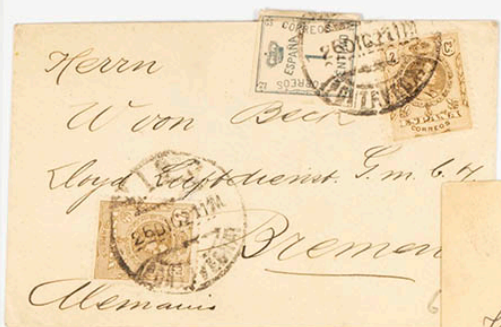 CORREOS
ESPAÑA
1
CENTIMO
CORREOS
26DIC21
CORREOS
Herrn
W von Beck
Lloyd Luftdienst. G.m.b.H
26DIC21
Bremen
Alemania